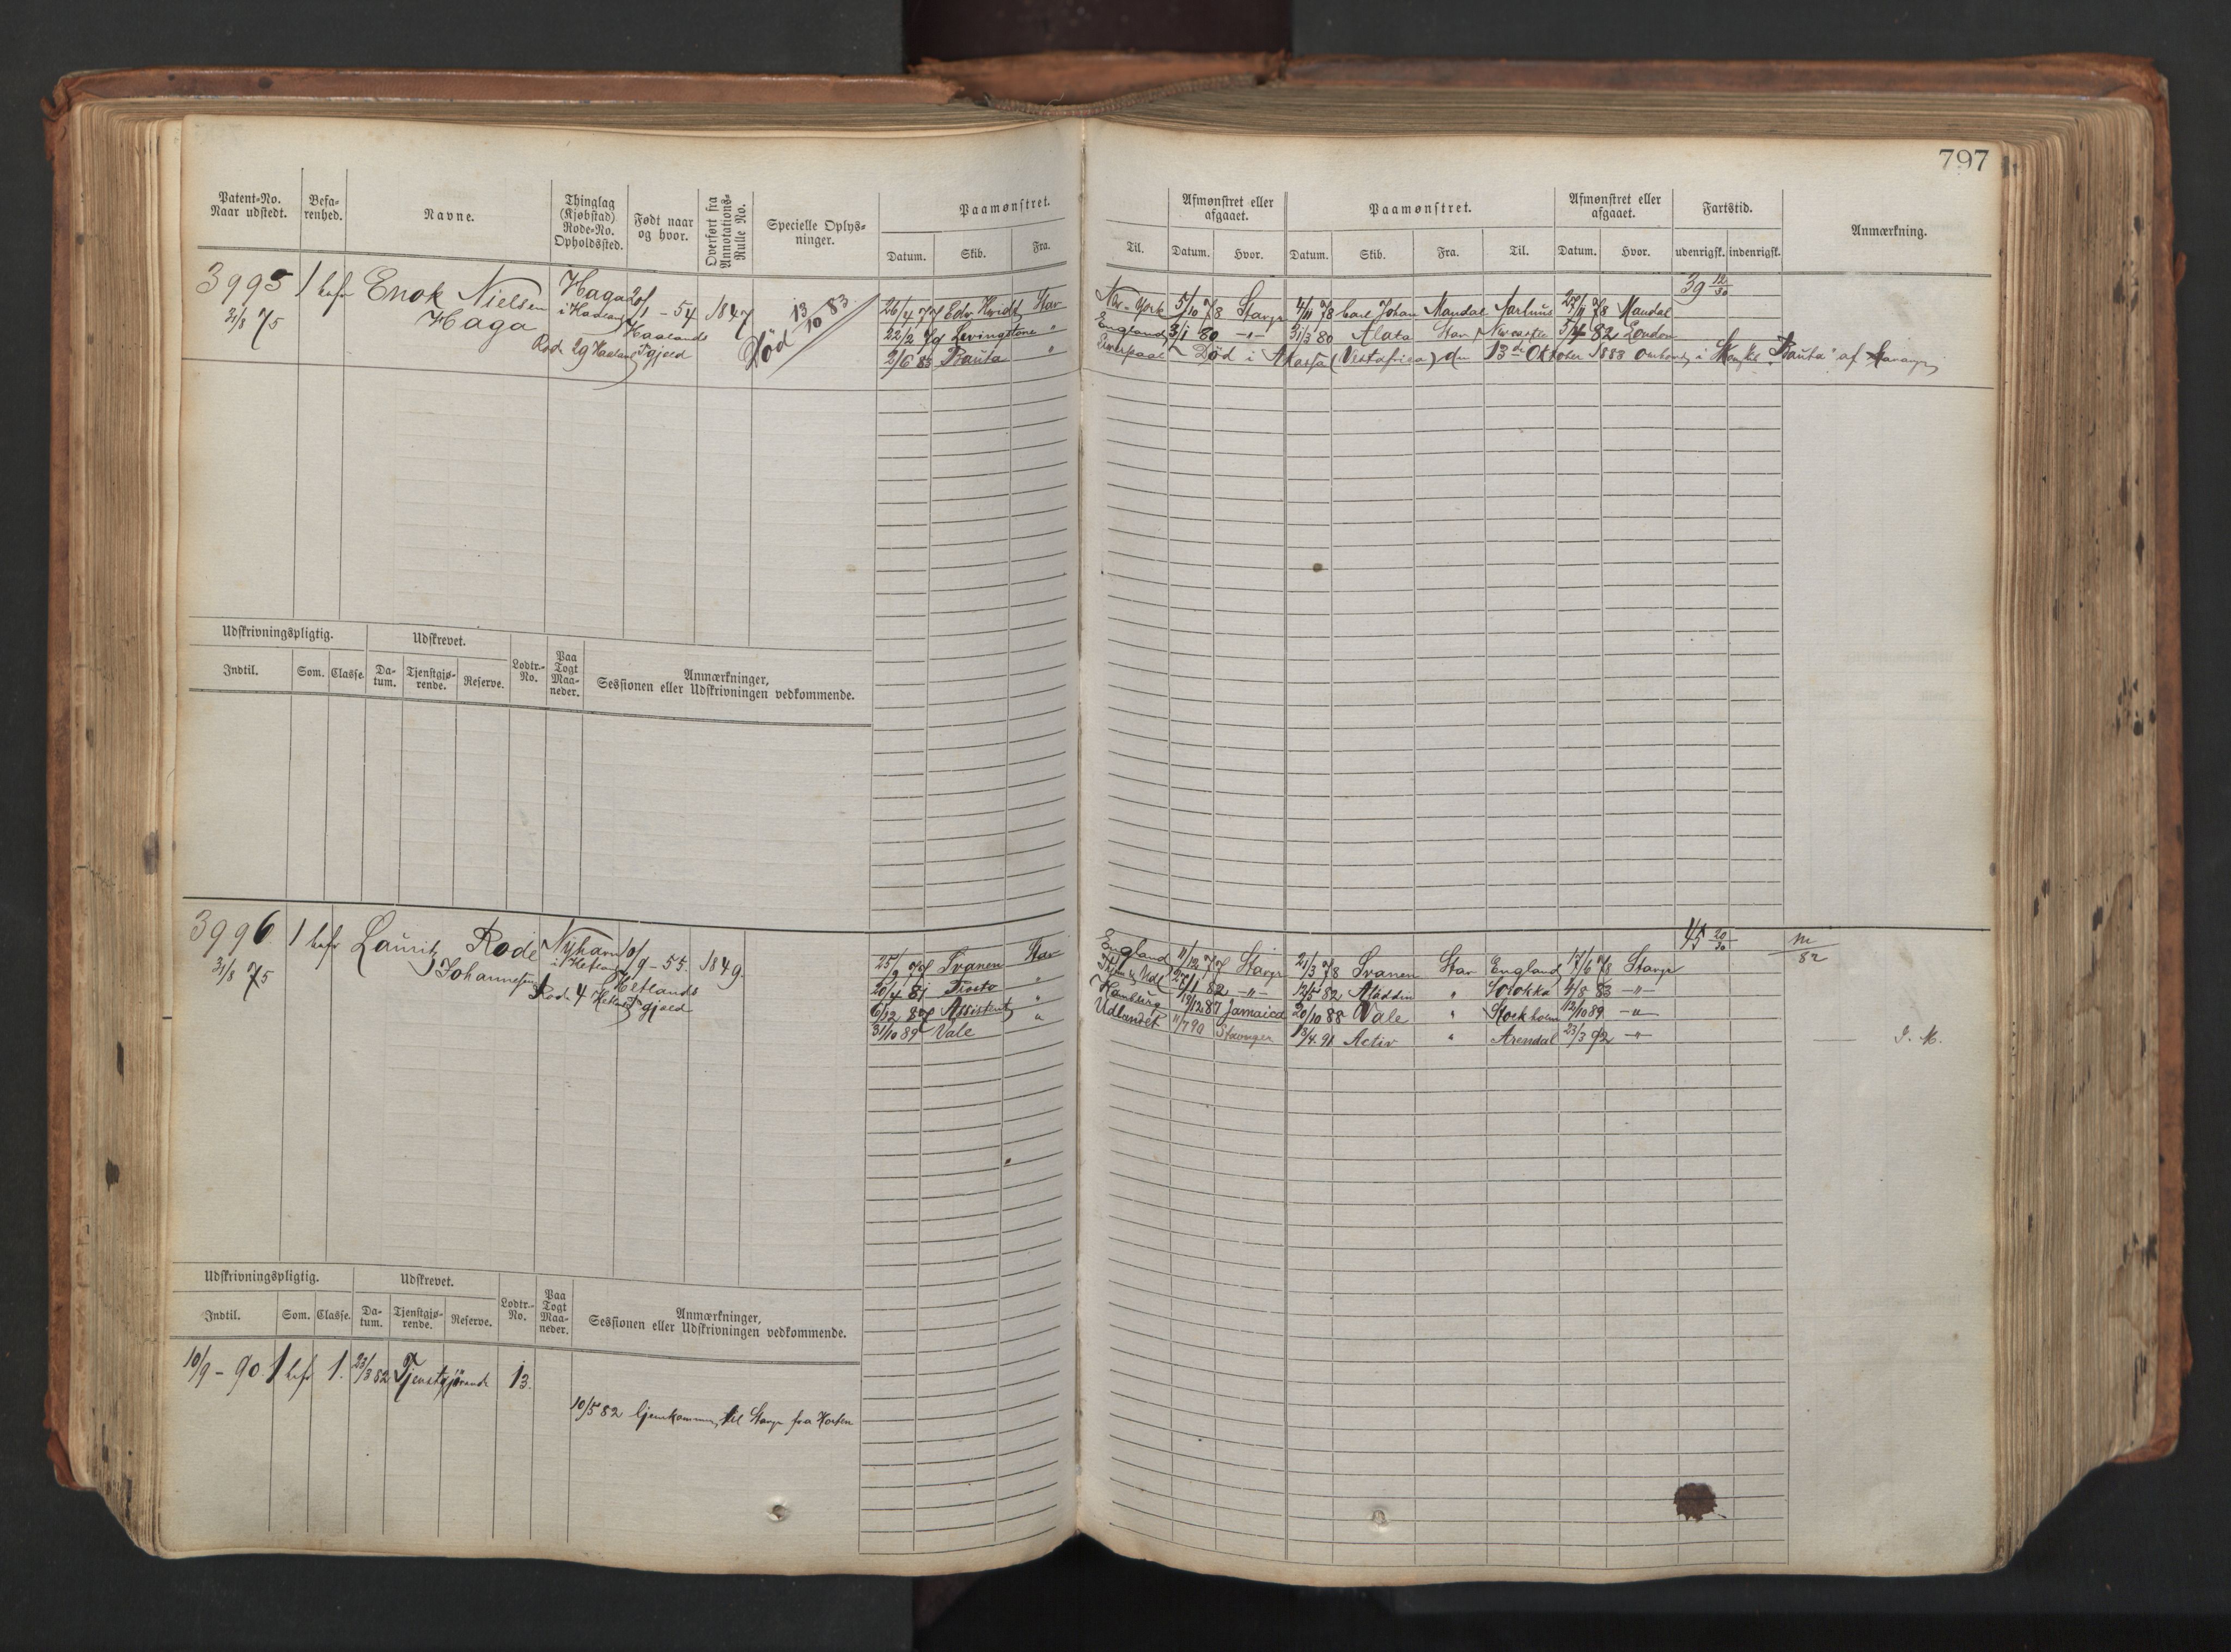 797
Patent-No. Naar udstedt. Befa-renhed. Navne. Thinglag (Kjøbstad) Rode-No. Opholdssted. Født naar og hvor. Overført fra Annotations-Rulle No. Specielle Oplys-ninger. Paamønstret. Afmønstret eller afgaaet. Paamønstret. Afmønstret eller afgaaet. Fartstid. Anmærkning.
Datum. Skib. Fra. Til. Datum. Hvor. Datum. Skib. Fra. Til. Datum. Hvor. udenrigsk. indenrigsk.
39 12/30
3995 1 befr Enok Nielsen Haga 20/1 - 54 1847 Død 13/10 83. 26/4 77 Edv. Hvidt Stav New-York 5/10 78 Stavgr 4/11 78 Carl Johan Mandal Aarhuus 27/11 78 Mandal
31/8 75 Haga Haalands 22/2 79 Levingstone " England 3/1 80 -"- 31/3 80 Alata Stav Newcastle 82 London
Rode 29 Pgjeld 2/6 83 Rauta " Død i Akassa (Vestafrica) den 13de Oktober 1883 ombord i "Rauta" af Stavanger
Udskrivningspligtig. Udskrevet. Lodtr.-No. Paa Togt Maa-neder. Anmærkninger, Sessionen eller Udskrivningen vedkommende.
Indtil. Som. Classe. Da-tum. Tjenstgjø-rende. Reserve.
45 20/30
3996 1 befr Lauritz Rode Nyhavn 10/9 - 55. 1849. 25/9 77 Svanen Stav England 11/12 77 Stavgr 21/3 78 Svanen Stav England 17/6 78 Stavgr 82
31/8 75 Johannesen Hetlands 20/4 81 " 27/1 82 -"- 12/5 82 Aladdin " 4/8 83 -"-
Rode 4 Pgjeld 6/12 87 Assistent " Hamburg 87 Jamaica 20/10 88 Vale " Stockholm 12/10 89 -"-
31/10 89 Vale " Udlandet 11/7 90 Stavanger 13/4 91 Activ " Arendal 23/3 92 -"-
Udskrivningspligtig. Udskrevet. Lodtr.-No. Paa Togt Maa-neder. Anmærkninger, Sessionen eller Udskrivningen vedkommende.
Indtil. Som. Classe. Da-tum. Tjenstgjø-rende. Reserve.
10/9 - 90. 1 befr 1. 23/3 82 Tjenstgjørende 13.
10/5 82 hjemkommen til Stavgr fra Horten